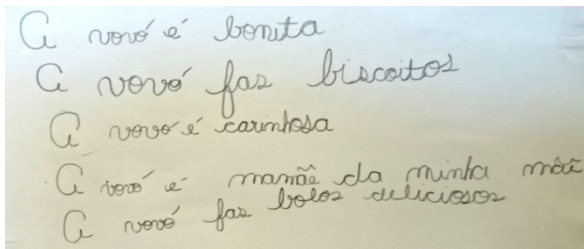 A vovó é bonita
A vovó faz biscoitos
A vovó é carinhosa
A vovó é mamãe da minha mãe
A vovó faz bolos deliciosos